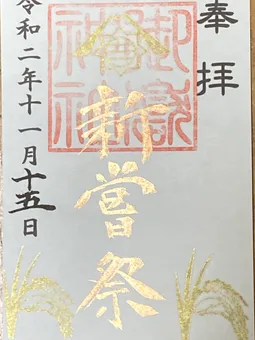 奉拝
御嶽神社
新嘗祭
令和二年十一月十五日